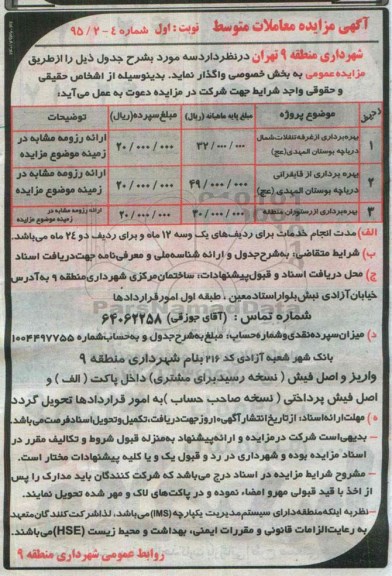 آگهی مزایده معاملات متوسط نوبت: اول شماره ٤-٢ / ٩٥
شهرداری منطقه ۹ تهران درنظرداردسه مورد بشرح جدول ذیل را ازطریق
مزایده عمومی به بخش خصوصی واگذار نماید. بدینوسیله از اشخاص حقیقی
و حقوقی واجد شرایط جهت شرکت در مزایده دعوت به عمل می‌آید:
ردیف موضوع پروژه مبلغ پایه ماهیانه (ریال) مبلغ سپرده (ریال) توضیحات
۱ بهره‌برداری ازغرفه‌تنقلات‌شمال دریاچه بوستان المهدی(عج) ۳۲/۰۰۰/۰۰۰ ۲۰/۰۰۰/۰۰۰ ارائه رزومه مشابه در زمینه موضوع مزایده
۲ بهره برداری از قایقرانی دریاچه بوستان المهدی (عج) ۴۹/۰۰۰/۰۰۰ ۲۰/۰۰۰/۰۰۰ ارائه رزومه مشابه در زمینه موضوع مزایده
۳ بهره‌برداری ازرستوران منطقه ۳۰/۰۰۰/۰۰۰ ۲۰/۰۰۰/۰۰۰ ارائه رزومه مشابه در زمینه موضوع مزایده
الف) مدت انجام خدمات برای ردیف‌های یک وسه ۱۲ ماه و برای ردیف دو ۲٤ ماه می‌باشد.
ب) شرایط متقاضی: به‌شرح‌جدول و ارائه شناسه‌ملی و معرفی‌نامه جهت‌دریافت اسناد
ج) محل دریافت اسناد و قبول‌پیشنهادات: ساختمان‌مرکزی شهرداری‌منطقه ۹ به‌آدرس
خیابان‌آزادی نبش‌بلواراستادمعین ، طبقه اول امورقراردادها
شماره تماس : (آقای جوزقی) ۶۴۰۶۲۲۵۸
د) میزان‌سپرده‌نقدی‌وشماره‌حساب: مبلغ‌به‌شرح‌جدول و به‌حساب‌شماره ۱۰۰۴۴۹۷۷۵۵
بانک شهر شعبه آزادی کد ۲۱۶ بنام شهرداری منطقه ۹
واریز و اصل فیش ( نسخه رسید برای مشتری) داخل پاکت ( الف ) و
اصل فیش پرداختی ( نسخه صاحب حساب )به امور قراردادها تحویل گردد
ه) مهلت‌ارائه‌اسناد: از تاریخ‌انتشارآگهی ۱۰روز جهت‌دریافت،تکمیل‌وتحویل‌اسنادفرصت‌می‌باشد.
– بدیهی‌است شرکت درمزایده و ارائه‌پیشنهاد به‌منزله قبول شروط و تکالیف مقرر در
اسناد مزایده بوده و شهرداری در رد و قبول یک و یا کلیه پیشنهادات مختار است.
– مشروح شرایط مزایده در اسناد درج می‌باشد که شرکت کنندگان باید مدارک را پس
از اخذ با قید قبولی مهرو امضاء نموده و در پاکت‌های لاک و مهر شده تحویل نمایند.
– نظر به اینکه‌منطقه‌دارای سیستم‌مدیریت یکپارچه(IMS)می‌باشد، لذا شرکت‌کنندگان‌متعهد
به رعایت‌الزامات قانونی و مقررات ایمنی، بهداشت و محیط زیست (HSE)می‌باشند.
روابط عمومی شهرداری منطقه ۹